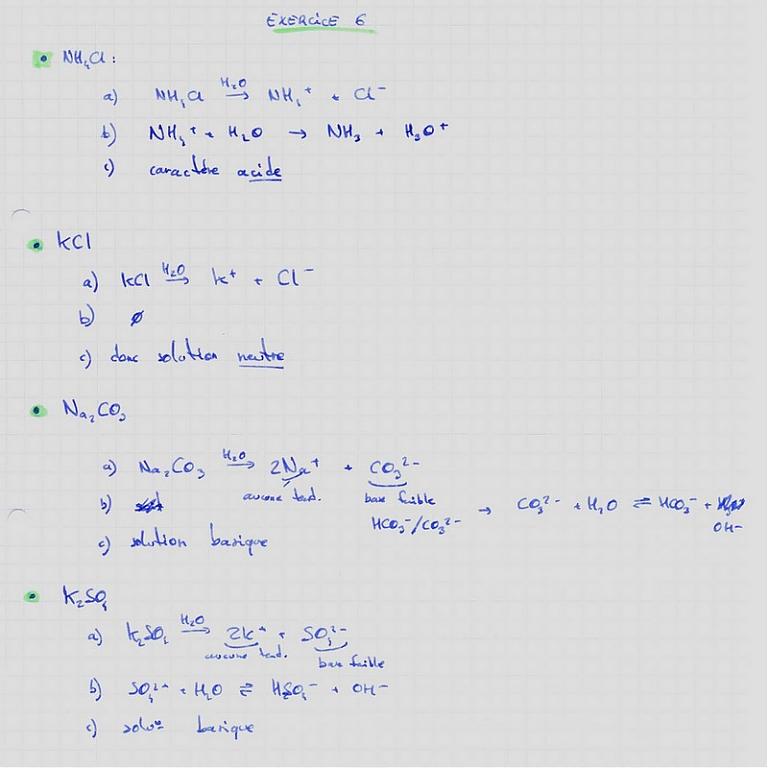 EXERCICE 6
NH₄Cl :
a) NH₄Cl H₂O → NH₄⁺ + Cl⁻
b) NH₄⁺ + H₂O → NH₃ + H₃O⁺
c) caractère acide
KCl
a) KCl H₂O → K⁺ + Cl⁻
b) ∅
c) donc solution neutre
Na₂CO₃
a) Na₂CO₃ H₂O → 2Na⁺ + CO₃²⁻
aucune tend. base faible
b) HCO₃⁻/CO₃²⁻ → CO₃²⁻ + H₂O ⇌ HCO₃⁻ +
OH⁻
c) solution basique
K₂SO₄
a) K₂SO₄ H₂O → 2K⁺ + SO₄²⁻
aucune tend. base faible
b) SO₄²⁻ + H₂O ⇌ HSO₄⁻ + OH⁻
c) solu° basique